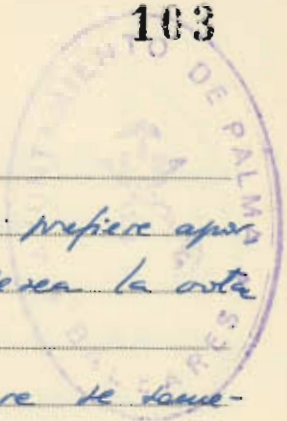 103
AYUNTAMIENTO DE PALMA
BALEARES
prefiere apor-
desea la vota
re se some-